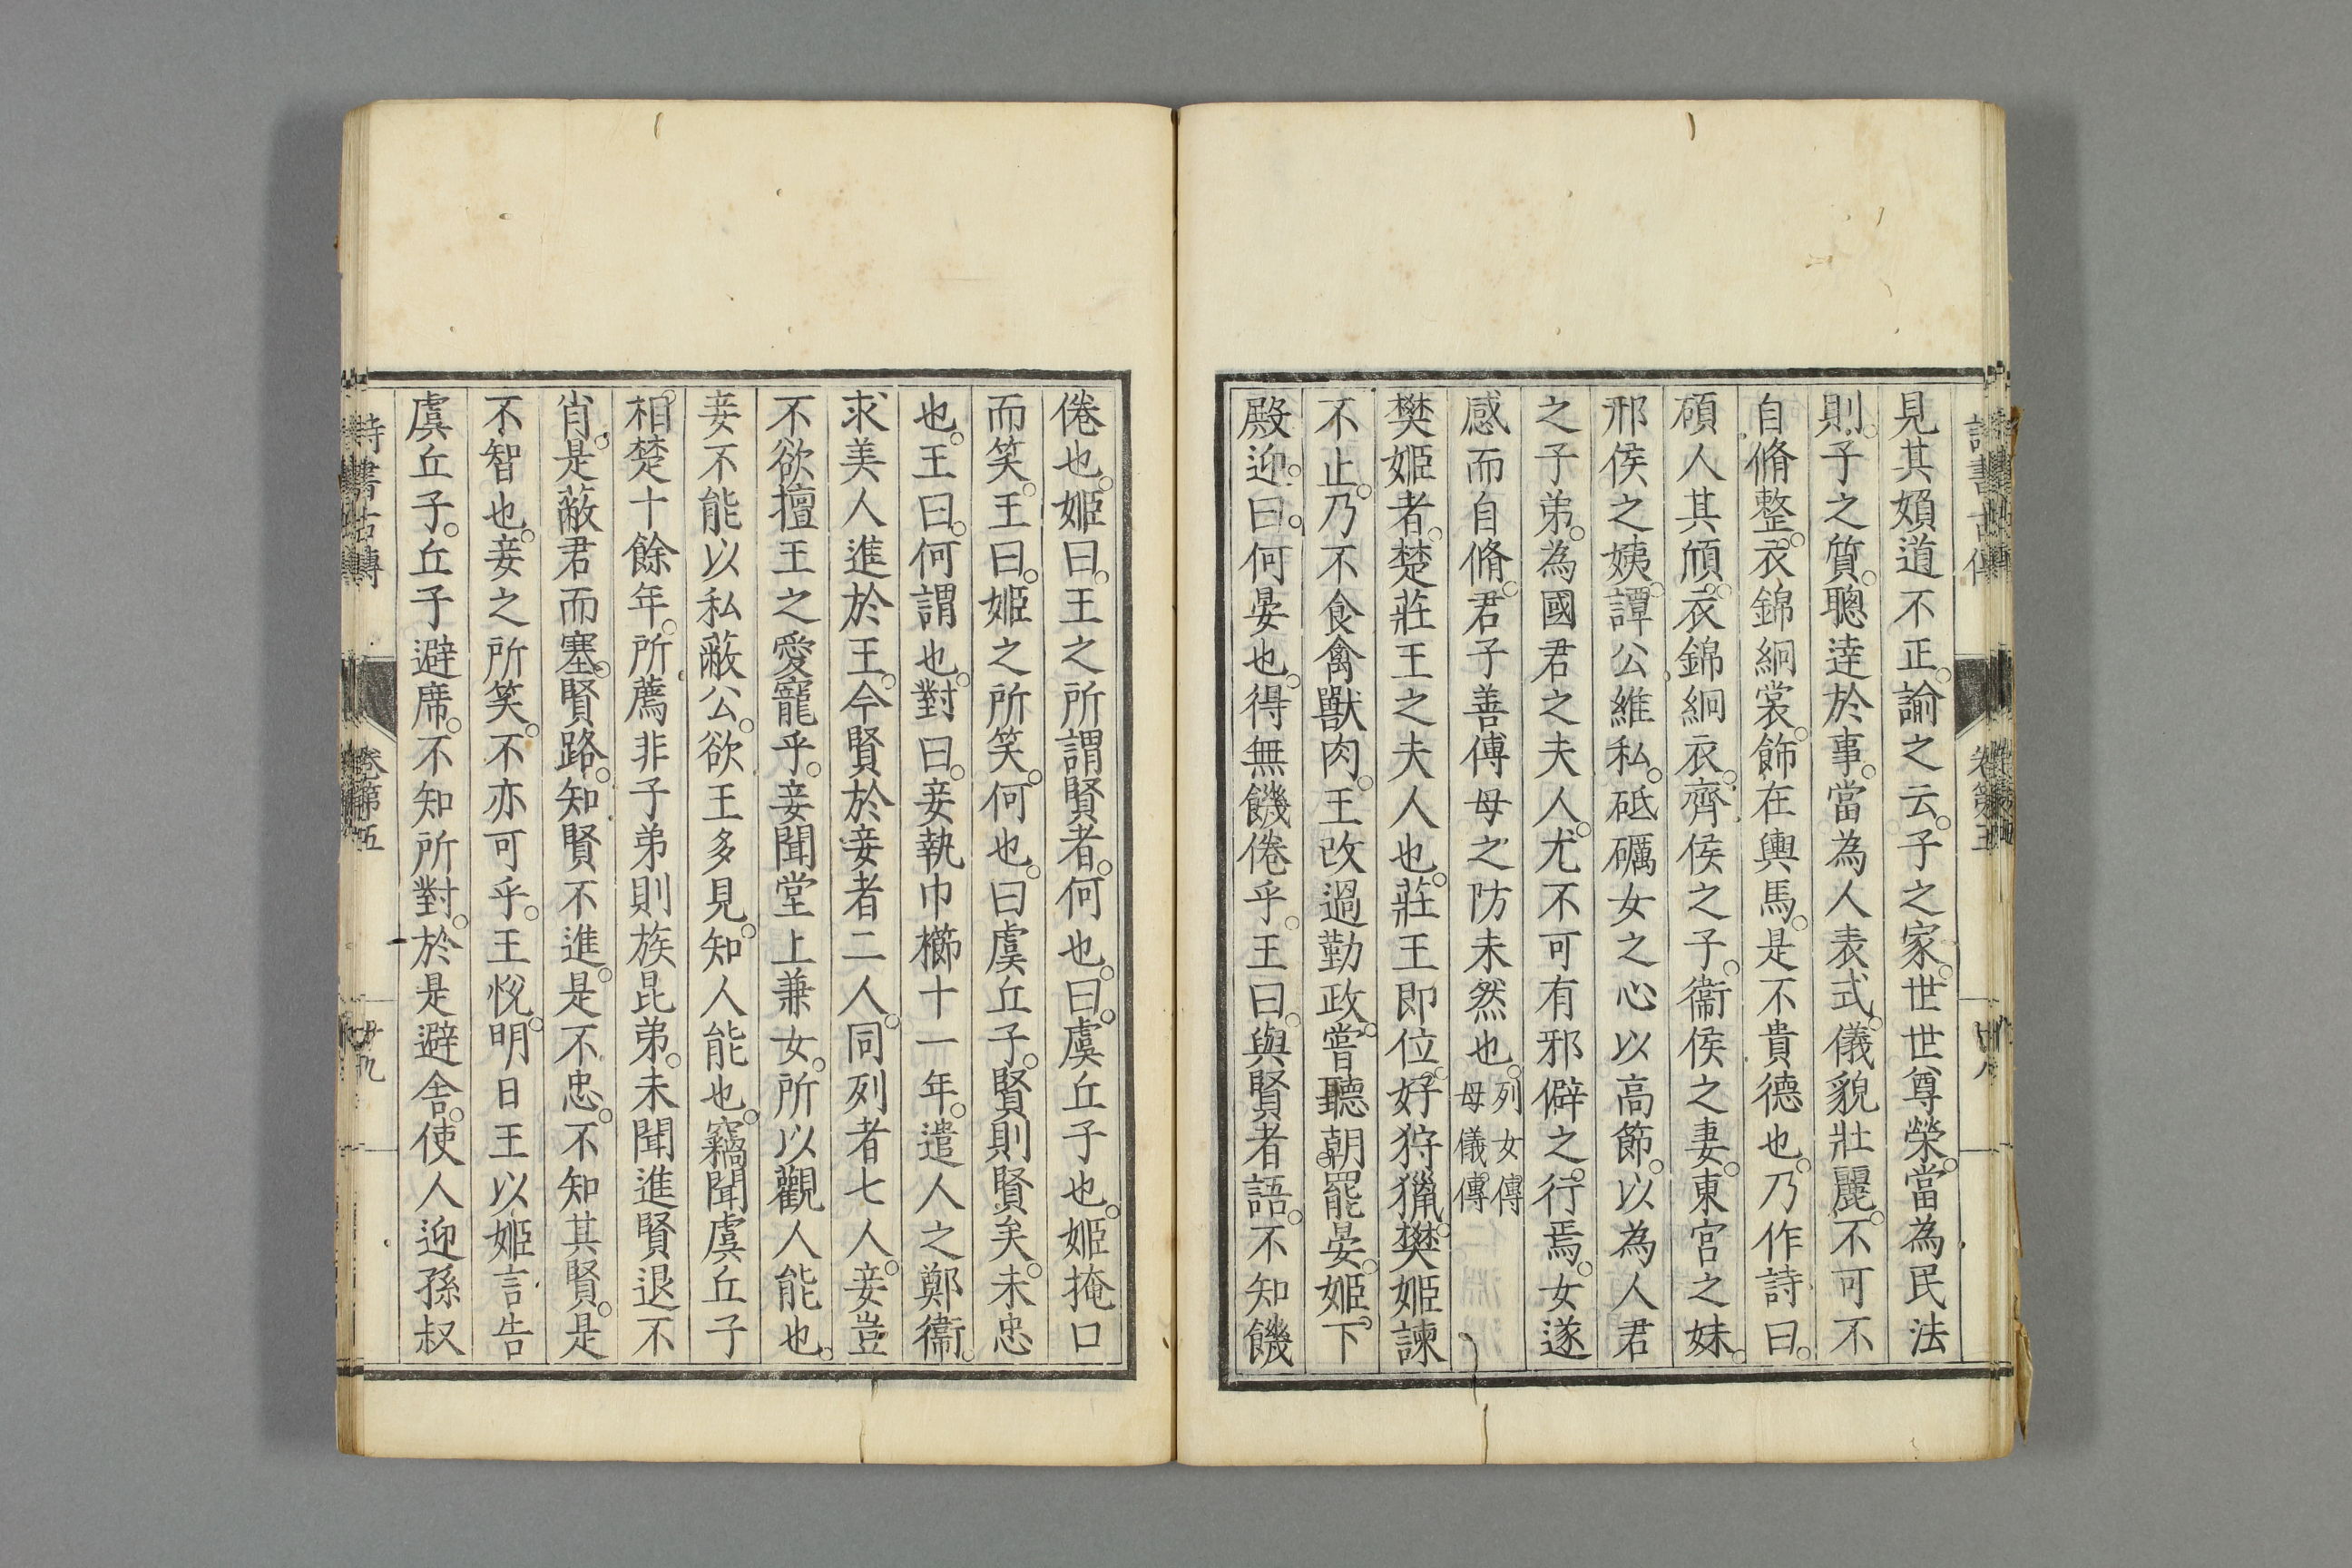 見其頮道不正。諭之云。子之家。世世尊榮。當為民法
則。子之質。聰達於事。當為人表式。儀貌壯麗。不可不
自脩整。衣錦絅裳。飾在輿馬。是不貴德也。乃作詩曰。
碩人其頎。衣錦絅衣。齊侯之子。衞侯之妻。東宮之妹。
邢侯之姨。譚公維私。砥礪女之心以高節。以為人君
之子弟。為國君之夫人。尤不可有邪僻之。行焉。女遂
感而自脩。君子善傅母之防未然也。列女傳母儀傳
樊姬者。楚莊王之夫人也。莊王即位。好狩獵。樊姬諫
不止。乃不食禽獸肉。王改過勤政。嘗聽朝。罷晏。姬。下
殿迎。曰。何晏也。得無饑倦乎。王曰。與賢者語。不知饑
倦也。姬曰。王之所謂賢者。何也。曰。虞丘子也。姬掩口
而笑。王曰。姬之所笑。何也。曰虞丘子。賢則賢矣。未忠
也。王曰。何謂也。對曰。妾執巾櫛十一年。遣人之鄭衞。
求美人進於王。今賢於妾者二人。同列者七人。妾豈
不欲擅王之愛寵乎。妾聞堂上兼女。所以觀人能也。
妾不能以私蔽公。欲王多見。知人能也。竊聞虞丘子
相。楚十餘年。所薦非子弟則族昆弟。未聞進賢退不
肖。是蔽君而塞。賢路。知賢不進。是不忠。不知其賢。是
不智也。妾之所笑。不亦可乎。王悅。明日王以姬言告
虞丘子。丘子避席。不知所對。於是避舍。使人迎孫叔
詩書古傳 卷第五 廿九